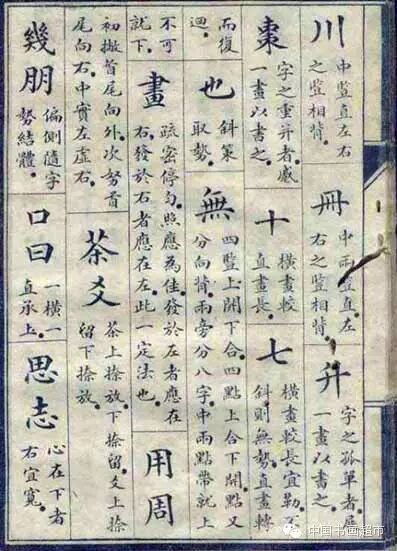 川
中豎直左右
之豎相背。
冊
中兩豎直左
右之豎相背。
升
字之孤單者
一畫以書之。
棗
字之重并者
一畫以書之。
十
橫畫較
直畫長。
七
橫畫較長宜勒。
斜則無勢。直畫轉
而復
迴。
也
斜策
取勢。
無
四豎上開下合。四點上合下開。點又
分向背。兩旁分八字。中兩點帶就上
不可
就下。
畫
疏密停勻。照應為佳。發於左者應在
右。發於右者應在左。此一定法也。
用周
初撇首尾向外。次努首
尾向右。中實左虛右。
茶爻
茶上捺放。下捺留。爻上捺
留下捺放。
幾朋
偏側隨字
勢結體。
口曰
一橫一
直承上。
思志
心在下者
右宜寬。
中国书画超市